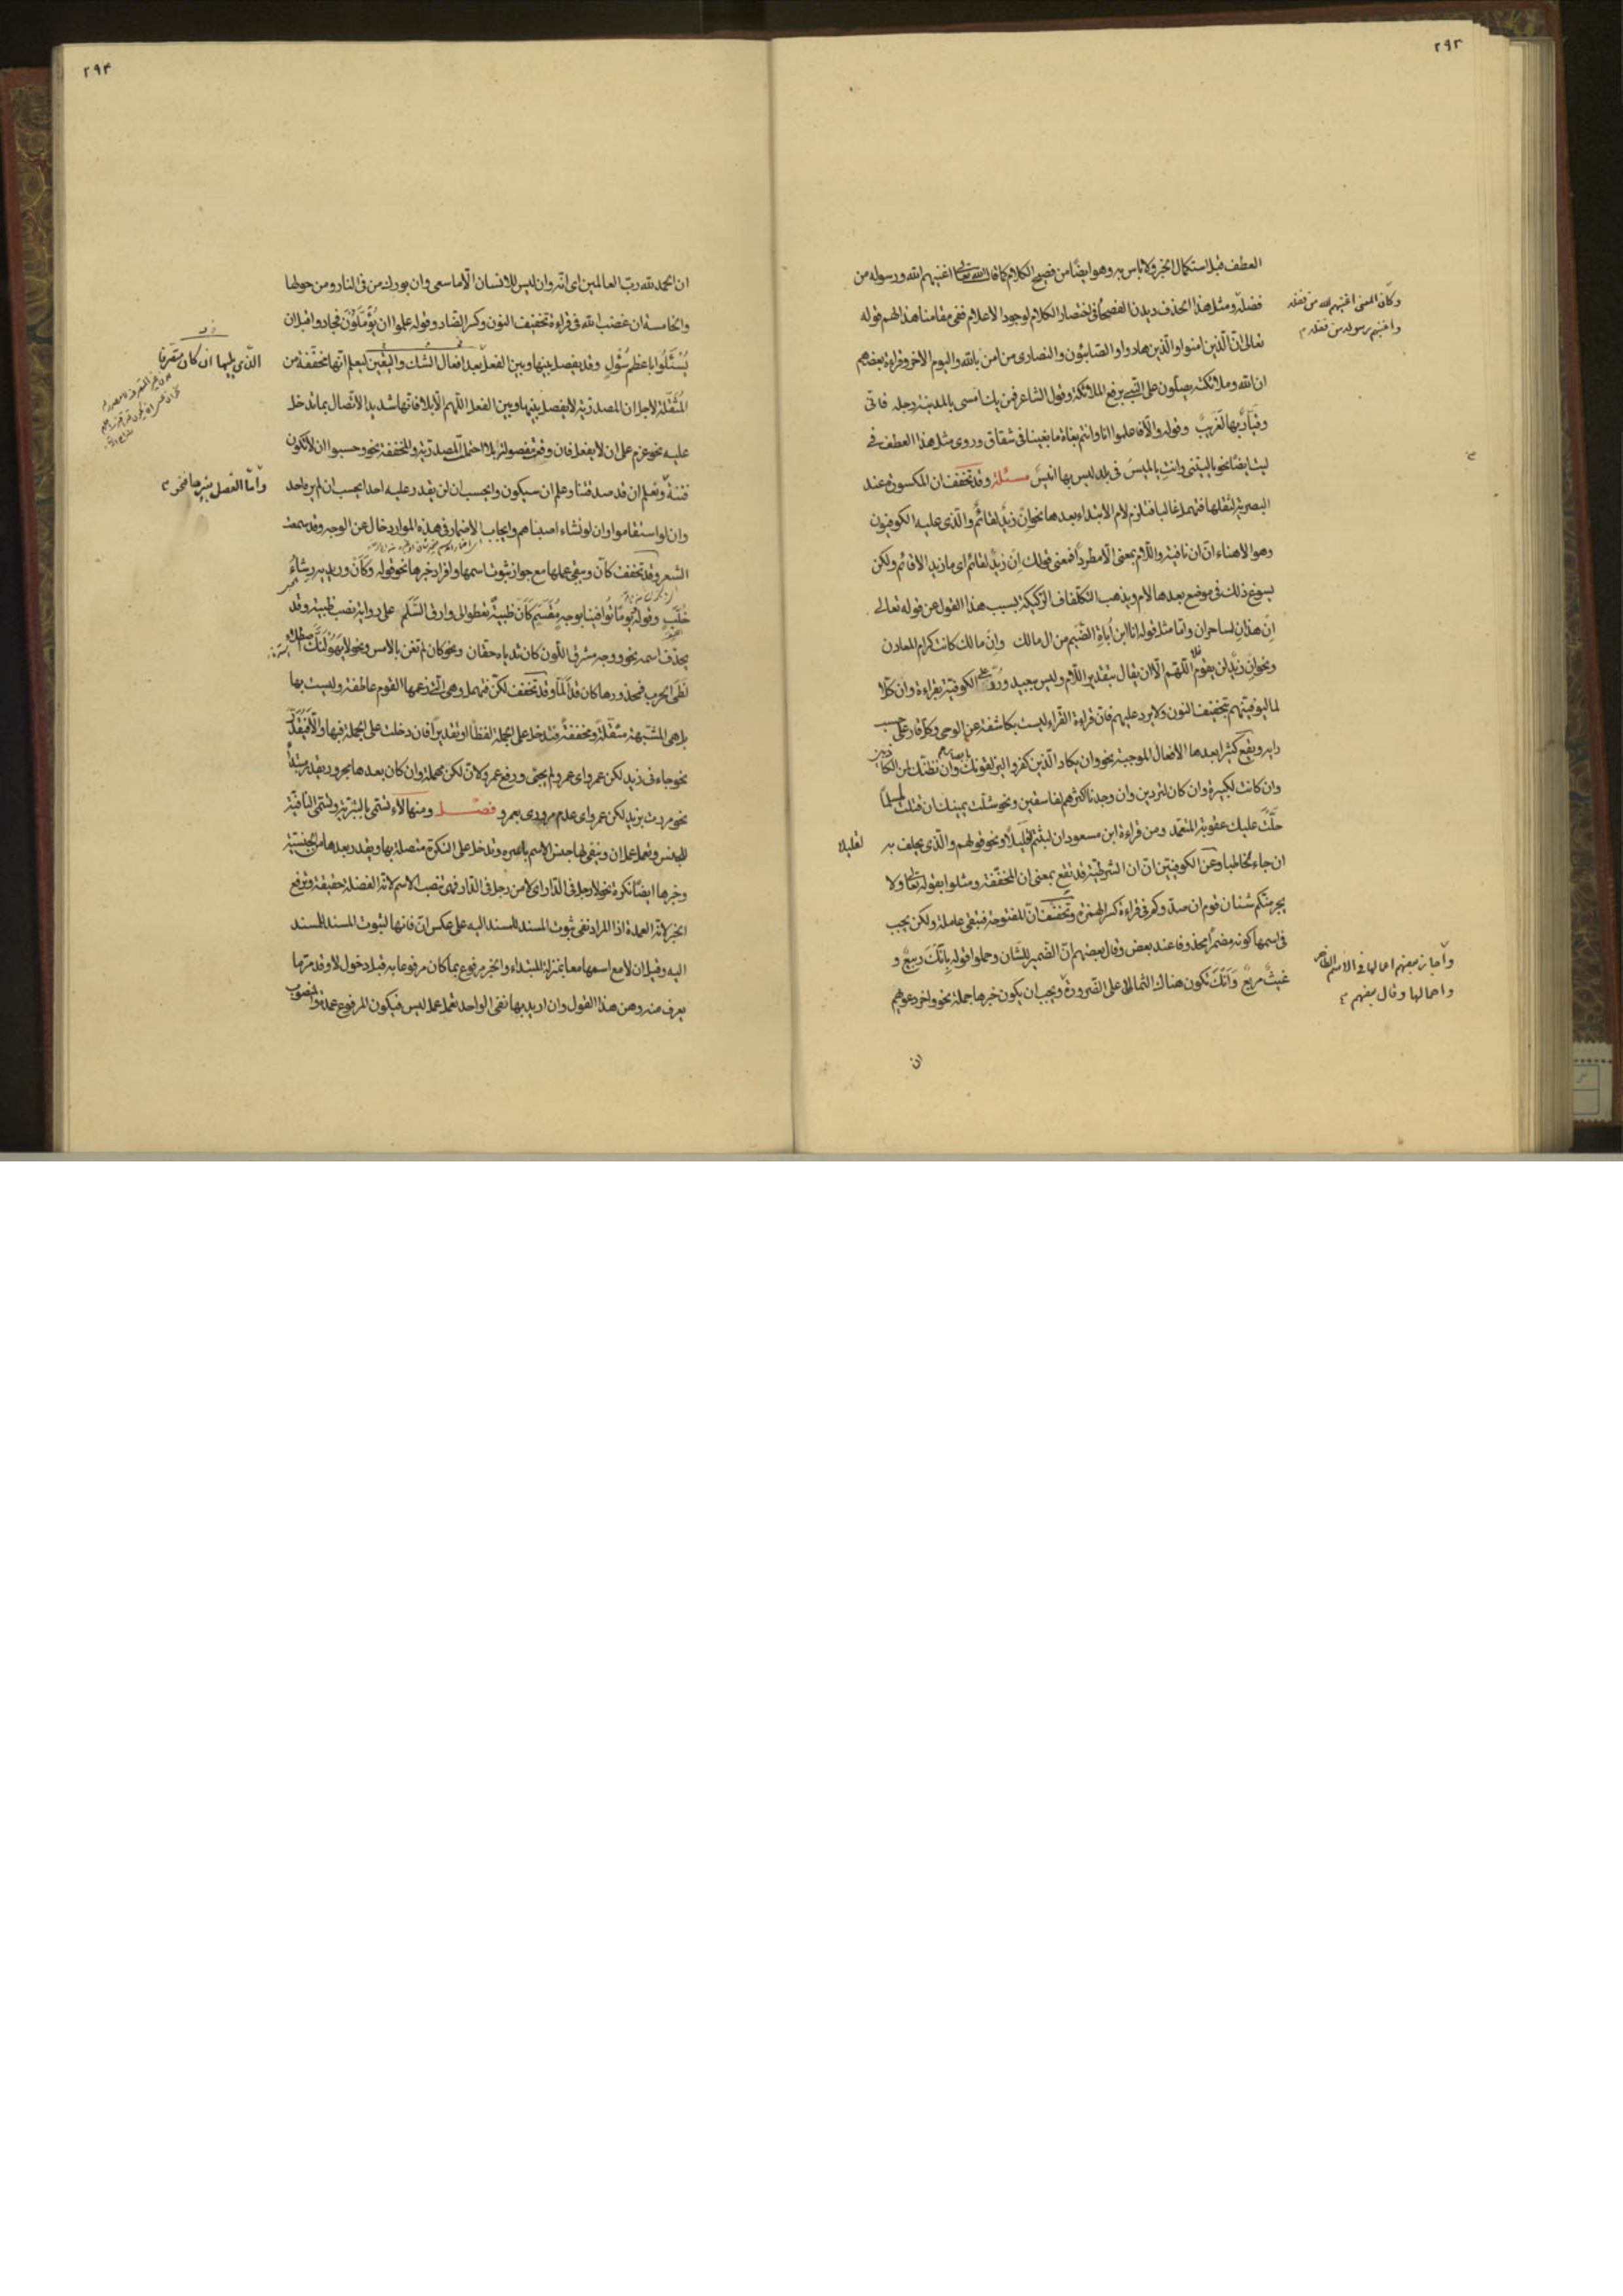 ٢٩٣
العطف قبل استكمال الخبر ولا باس به وهو ايضًا من فصيح الكلام كما قال الله تعالى اغنيهم الله ورسوله من
فضله ومثل هذا الحذف ديدن الفصحاء في اختصار الكلام لوجود الاعلام ففي مقامنا هذا لهم قوله
تعالى انّ الّذين امنوا والّذين هادوا والصّابئون والنصارى من امن بالله واليوم الاخر وقراءة بعضهم
ان الله وملائكته يصلّون على النّبي برفع الملائكة وقول الشاعر فمن يك امسى بالمدينة رحله فانّي
وقيّارٌ بها لغريبُ وقوله والّا فاعلموا انّا وانتم بغاة ما بقينا في شقاق وروى مثل هذا العطف في
ليت ايضًا نحو يا ليتني وانتِ يا لميسُ في بلد ليس بها انيسُ مسئلة وقد تخفف ان المكسورة عند
البصرية لثقلها فتهمل غالبا فتلزم لام الابتداء بعدها نحو اِن زيدٌ لقائمٌ والّذي عليه الكوفيون
وهو الاهناء انّ ان نافية واللّام بمعنى الّا مطردا فمعنى قولك اِن زيدٌ لقائم اى ما زيد الا قائم ولكن
يسوغ ذلك في موضع بعدها لام ويذهب التكلفاف الركيكة بسبب هذا القول عن قوله تعالى
اِن هذانِ لساحران وامّا مثل قوله انا ابن اُباةِ الضّيم من ال مالك وانِ مالك كانت كرام المعادن
ونحو اِن زيدٌ لن يقوم اللّهم الّا ان يقال بتقدير اللّام وليس بجيد ورُدّ على الكوفية بقراءة وان كلّا
لما ليوفينهم بتخفيف النون ولا يرد عليهم فان قراءة القراء ليست بكاشفة عن الوحى وكل قار على حسب
رايه ويقع كثيرا بعدها الافعال الموجبة نحو وان يكاد الّذين كفروا ليزلقونك وان نظنّك لمن الكاذبين
وان كانت لكبيرة وان كان لتردين وان وجدنا اكثرهم لفاسقين ونحو شلّت يمينك ان قتلت لمسلمًا
حلّت عليك عقوبة المتعمّد ومن قراءة ابن مسعود ان لبثتم لقليلًا ونحو قولهم والّذي يحلف به
ان جاء لخاطبا وعن الكوفيين انّ ان الشرطية قد تقع بمعنى ان المخففة ومثلوا بقوله تعالى ولا
يجرمنّكم شنان قوم ان صدّوكم في قراءة كسر الهمزة وتخفف انّ المفتوحة فتبقى عاملة ولكن يجب
في اسمها كونه مضمرًا محذوفا عند بعض وقال بعضهم انّ الضمير للشّان وحملوا قوله بانْكَ ربيعٌ و
غيثٌ مريعٌ وَاَنْكَ تكون هناك الثمالا على الضرورة ويجب ان يكون خبرها جملة نحو واخر دعويهم
ان
وكان المعنى اغنيهم الله من فضله
واغنيهم رسوله من فضله
لقليلا
واجاز بعضهم اعمالها في الاسم الظاهر
واهمالها وقال بعضهم
٢٩٤
ان الحمد لله ربّ العالمين اى انّه وان ليس للانسان الّا ما سعى وان بورك من في النار ومن حولها
والخامسة ان غضب الله في قراءة تخفيف النون وكسر الضاد وقوله علموا ان يُؤمّلُون فجادوا قبل ان
يُسْئَلُوا باعظم سُؤْلٍ وقد يفصل بينها وبين الفعل بعد افعال الشك واليقين ليعلم انها مخففة من
المُثقّلة لاجل ان المصدرية لا يفصل بينها وبين الفعل اللهم الّا بلا فانّها شديد الاتصال بما تدخل
عليه نحو عزم على ان لا يفعل فان وقعت مفصولة بلا احتمل المصدرية والمخففة نحو وحسبوا ان لا تكون
فتنةٌ ونعلم ان قد صدقتنا وعلم ان سيكون وايحسب ان لن يقدر عليه احد ايحسب ان لم يره احد
وان لو استقاموا وان لو نشاء اصبناهم وايجاب الاضمار في هذه الموارد خال عن الوجه وقد سمعت
الشعر وقد تخفف كانّ ويبقى عملها مع جواز ثبوت اسمها وافراد خبرها نحو قوله وكَاَنْ وريديه رِشاءُ
خُلّبٍ وقوله يومًا تُوافينا بوجهٍ مُقسّمٍ كَاَن ظبيةٌ تعطو الى وارق السّلم على رواية نصب ظبية وقد
يحذف اسمه نحو ووجه مشرق اللون كان ثدياه حقّان ونحو كان لم تغن بالامس ونحو لا يهولنّك اصطلاء
لظى الحرب فمحذورها كان قد المّا وقد تخفف لكنّ فتهمل وهي الّتي زعمها القوم عاطفة وليست بها
بل هى المشبهة مثقّلةً ومخففةً فتدخل على الجملة لفظًا او تقديرًا فان دخلت على الجملة فبها والّا فيُقدّر
نحو جاءني زيد لكن عمرو اى عمرو لم يجئ ورفع عمرو لانّ لكن مهملة وان كان بعدها مجرور يقدر مبتدأٌ
نحو مررت بزيد لكن عمرو اى عدم مرورى بعمرو فصل ومنها لاء تسمّى بالتبرية وتسمّى النافية
للجنس وتعمل عمل ان وينفى بها جنس الاسم باسره وتدخل على النكرة متصلة بها ويقدر بعدها من الجنسيّة
وخبرها ايضًا نكرة نحو لا رجل في الدّار اى لا من رجل في الدّار فهى تنصب الاسم لانّه الفضلة حقيقة وترفع
الخبر لانّه العمدة اذ المراد نفى ثبوت المسند للمسند اليه على عكس انّ فانها لثبوت المسند للمسند
اليه وقيل ان لا مع اسمها معا بمنزلة المبتداء والخبر مرفوع بما كان مرفوعا به قبل دخول لا وقد مرّ ما
يعرف منه وهن هذا القول وان اريد بها نفى الواحد تعمل عمل ليس فيكون المرفوع عمدة والمنصوب
الّذي يليها ان كان متصرفا
وامّا الفصل بغيرها نحو